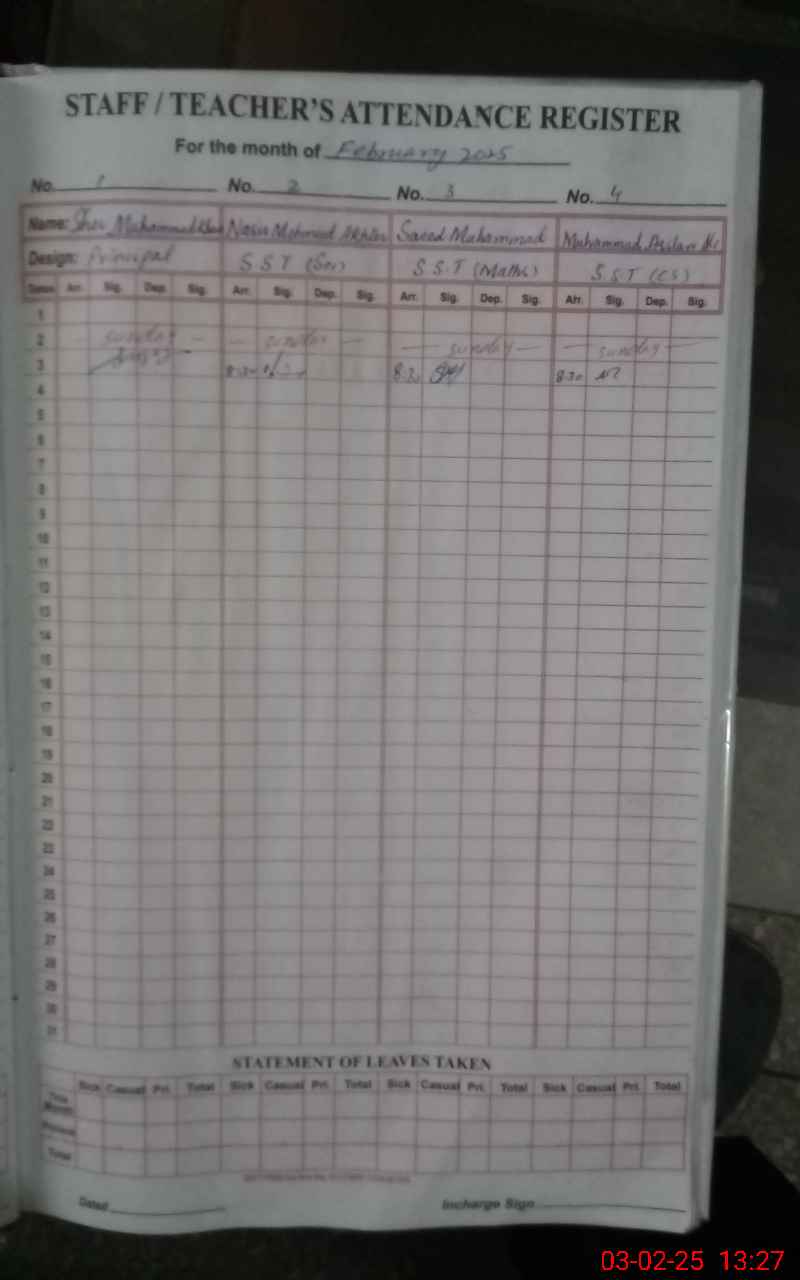 STAFF / TEACHER'S ATTENDANCE REGISTER
For the month of February 2025
No. 1 No. 2 No. 3 No. 4
Name: Sher Muhammad Khan Nasir Mehmud Akhter Saeed Muhammad Muhammad Arslan
Design: Principal S.S.T (Sci) S.S.T (Maths) S.S.T (CS)
Dates Arr. Sig. Dep. Sig. Arr. Sig. Dep. Sig. Arr. Sig. Dep. Sig. Arr. Sig. Dep. Sig.
1
2 sunday sunday sunday sunday
3 8:30 8:30 8:30
4
5
6
7
8
9
10
11
12
13
14
15
16
17
18
19
20
21
22
23
24
25
26
27
28
29
30
31
STATEMENT OF LEAVES TAKEN
Sick Casual Pri. Total Sick Casual Pri. Total Sick Casual Pri. Total Sick Casual Pri. Total
This Month
Total
Dated
Incharge Sign
03-02-25 13:27